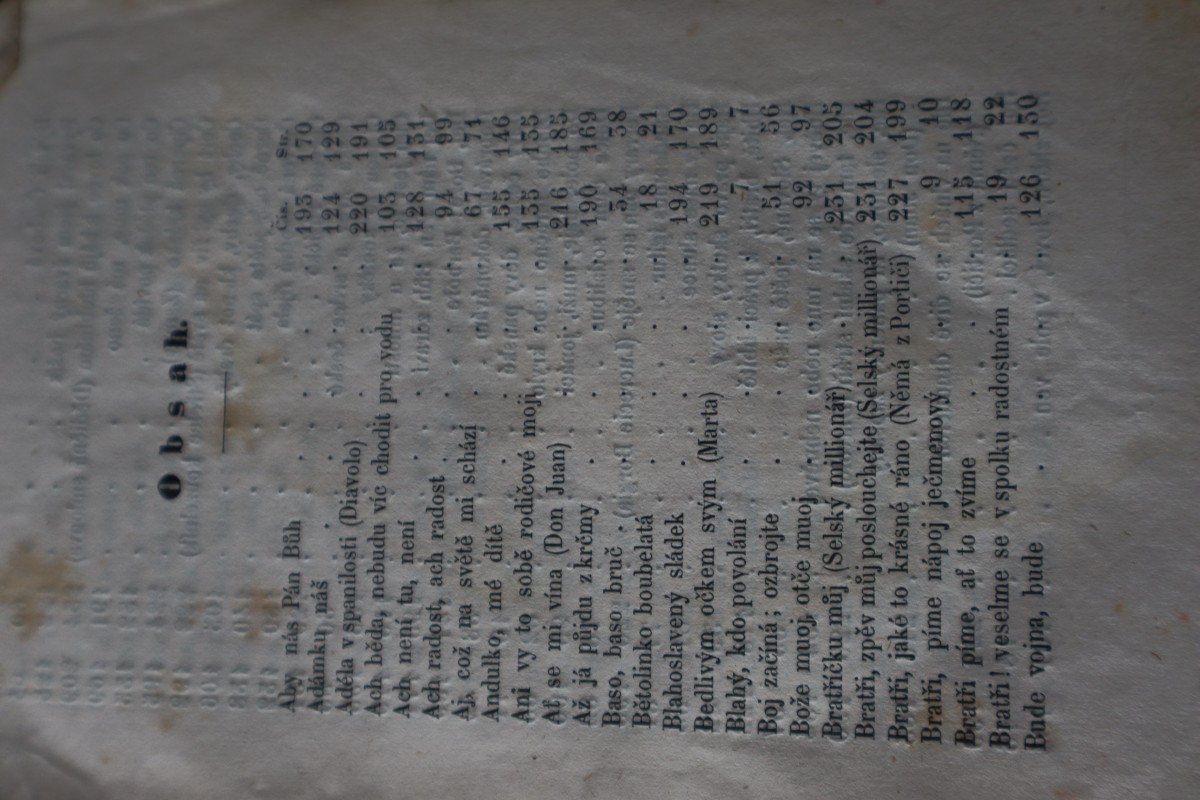 Obsah.
Čís. Str.
Aby nás Pán Bůh . . . . . 193 170
Adámku náš . . . . . 124 129
Adéla v spanilosti (Diavolo) . . . 220 191
Ach běda, nebudu víc chodit pro vodu 103 105
Ach není tu, není . . . . 128 131
Ach radost, ach radost . . . . 94 99
Aj, což na světě mi schází . . . 67 71
Andulko, mé dítě . . . . 155 146
Ani vy to sobě rodičové moji . . 135 135
Ať se mi vína (Don Juan) . . . 216 185
Až já půjdu z krčmy . . . . 190 169
Baso, baso bruč . . . . . 34 38
Bětolinko boubelatá . . . . 18 21
Blahoslavený sládek . . . . 194 170
Bedlivým očkem svým (Marta) . . 219 189
Blahý, kdo povolání . . . . 7 7
Boj začíná; ozbrojte . . . . 51 56
Bože muoj, otče muoj . . . . 92 97
Bratříčku můj (Selský millionář) . . 231 205
Bratři, zpěv můj poslouchejte (Selský millionář) 231 204
Bratři, jaké to krásné ráno (Němá z Portiči) 227 199
Bratři, píme nápoj ječmenový . . 9 10
Bratři píme, ať to zvíme . . . 115 118
Bratři! veselme se v spolku radostném . 19 22
Bude vojna, bude . . . . 126 130